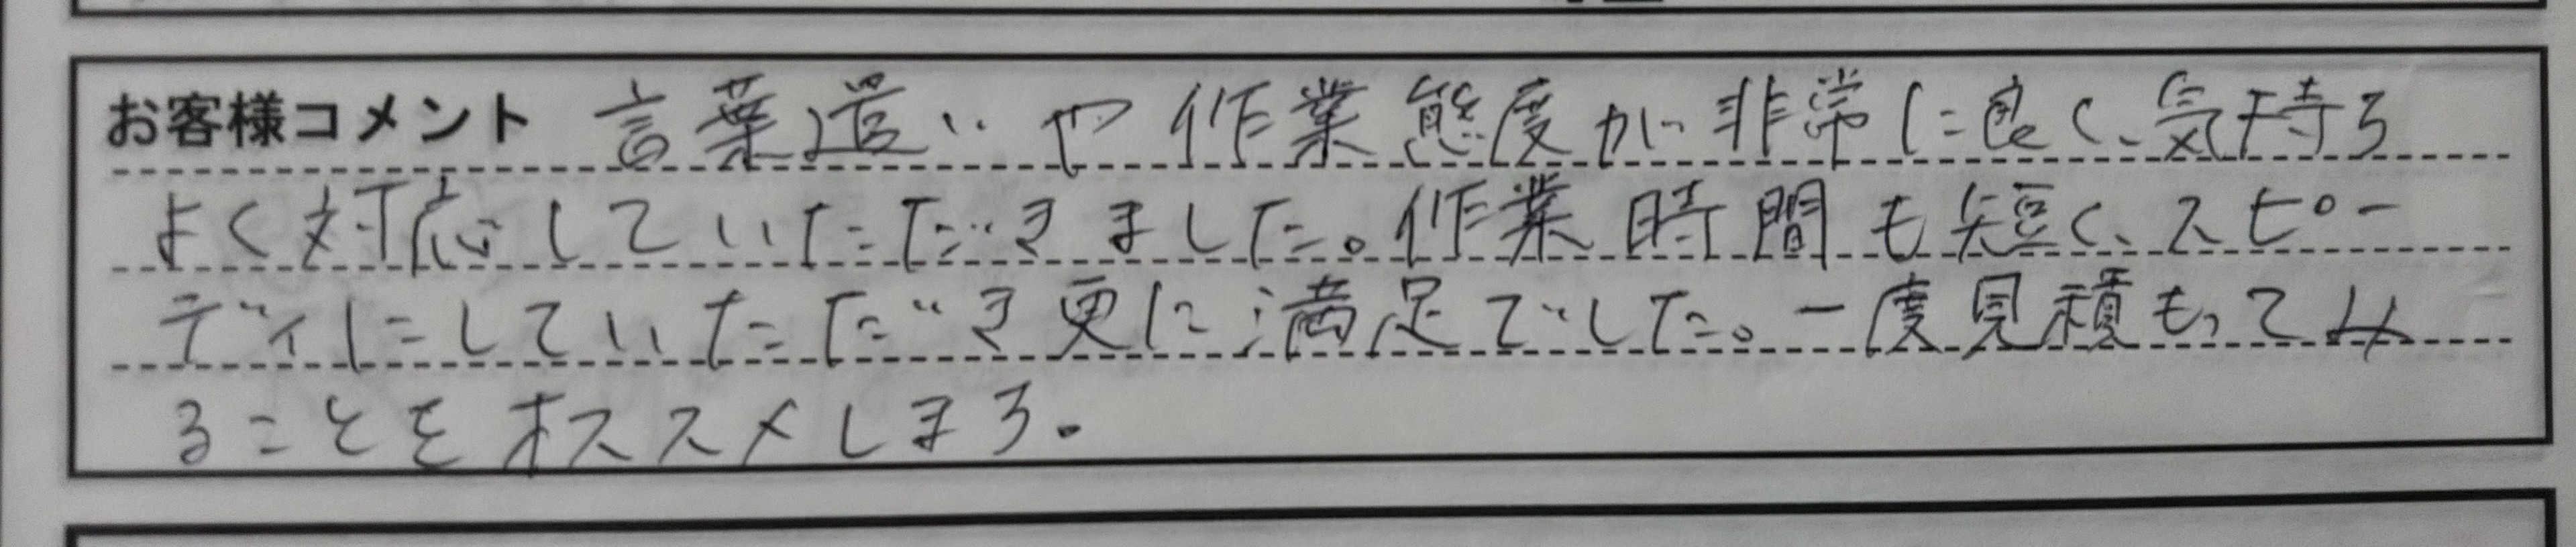 お客様コメント 言葉遣いや作業態度が非常に良く、気持ち
よく対応していただきました。作業時間も短く、スピー
ディにしていただき更に満足でした。一度見積もってみ
ることをオススメします。